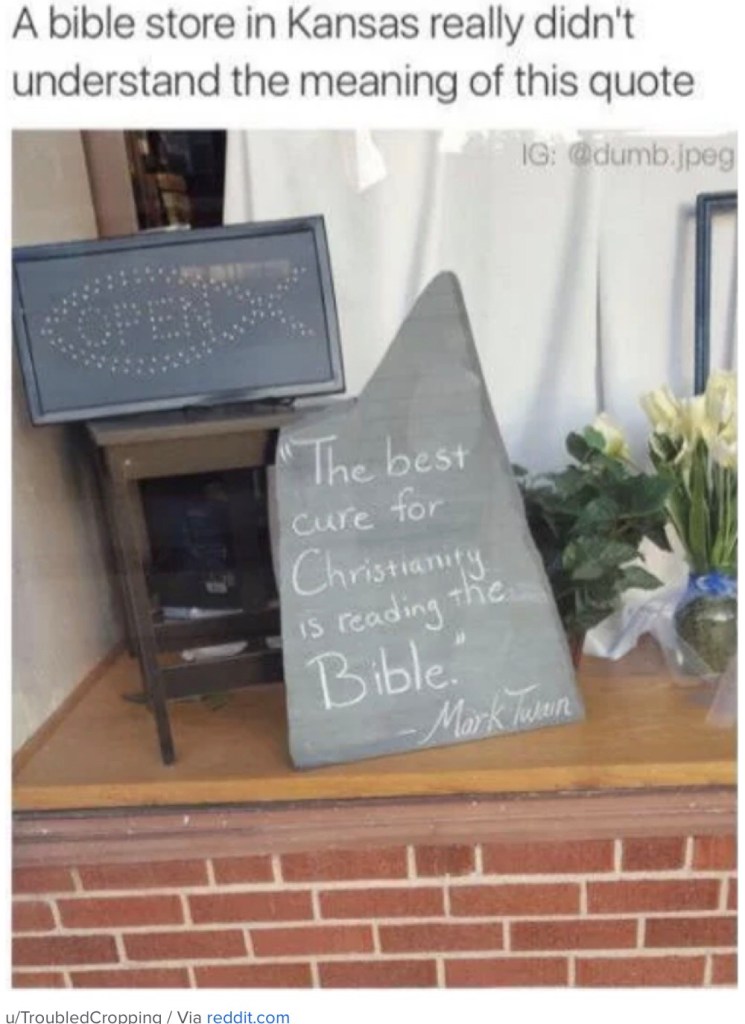 A bible store in Kansas really didn't
understand the meaning of this quote
IG: @dumb.jpeg
OPEN
"The best
cure for
Christianity
is reading the
Bible."
- Mark Twain
u/TroubledCropping / Via reddit.com